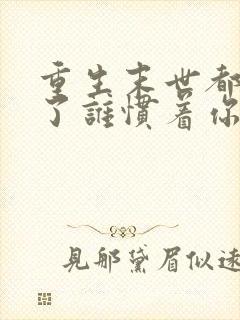 重生末世都
了誰慣着你
見那黛眉似遠